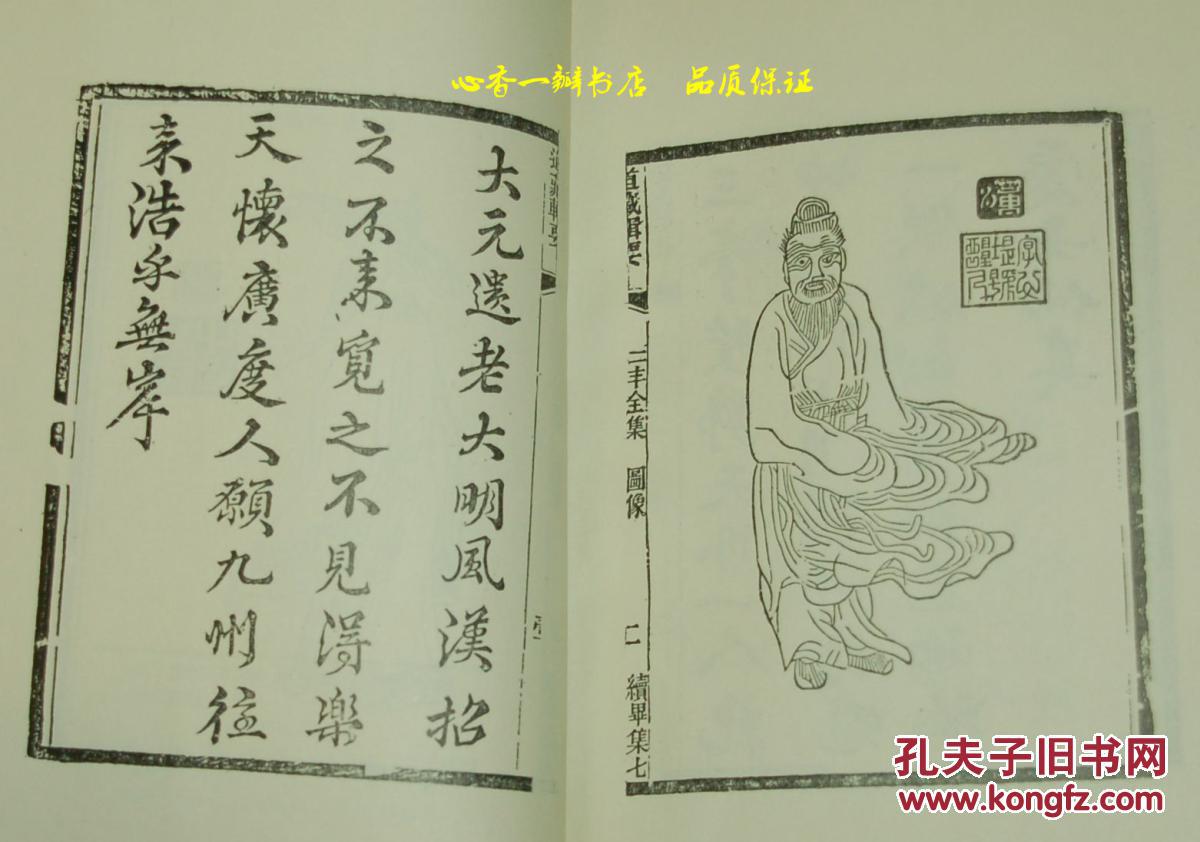 心香一瓣书店 品质保证
道藏輯要
三丰全集 圖像
二 續畢集七
大元遗老大明風漢招
之不来寛之不見淂樂
天懷廣度人願九州往
来浩乎無岸
道藏輯要
孔夫子旧书网
www.kongfz.com